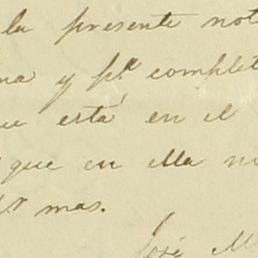 la presente not
na y pr. complet
ue está en el
que en ella n
mas.
José M